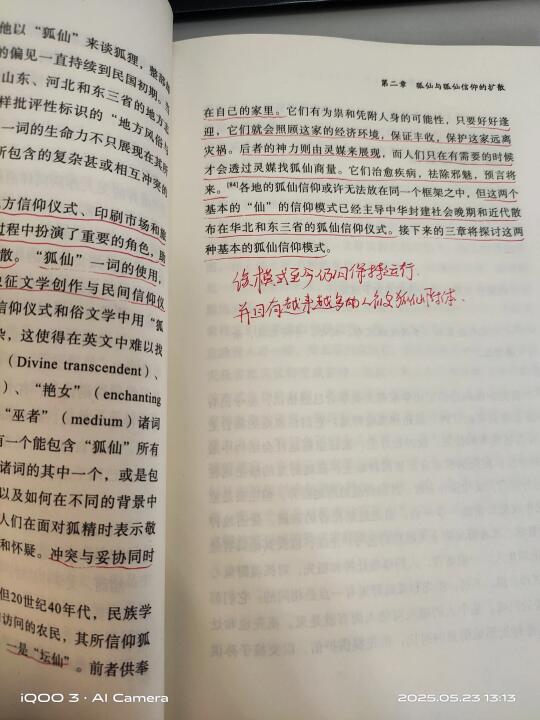 他以“狐仙”来谈狐狸，整部
的偏见一直持续到民国初期。
山东、河北和东三省的地方
样批评性标识的“地方风俗
一词的生命力不只展现在其
所包含的复杂甚或相互冲突的
方信仰仪式、印刷市场和
过程中扮演了重要的角色，
散。“狐仙”一词的使用，
象征文学创作与民间信仰仪
信仰仪式和俗文学中用“狐
杂，这使得在英文中难以找
（Divine transcendent）、
）、“艳女”（enchanting
“巫者”（medium）诸词
有一个能包含“狐仙”所有
诸词的其中一个，或是包
以及如何在不同的背景中
人们在面对狐精时表示敬
和怀疑。冲突与妥协同时
但20世纪40年代，民族学
访问的农民，其所信仰狐
一是“坛仙”。前者供奉
第二章 狐仙与狐仙信仰的扩散
在自己的家里。它们有为祟和凭附人身的可能性，只要好好逢
迎，它们就会照顾这家的经济环境，保证丰收，保护这家远离
灾祸。后者的神力则由灵媒来展现，而人们只在有需要的时候
才会透过灵媒找狐仙商量。它们治愈疾病，祛除邪魅，预言将
来。[84]各地的狐仙信仰或许无法放在同一个框架之中，但这两个
基本的“仙”的信仰模式已经主导中华封建社会晚期和近代散
布在华北和东三省的狐仙信仰仪式。接下来的三章将探讨这两
种基本的狐仙信仰模式。
模式至今仍旧保持运行.
并且有越来越多的人 狐仙附体.
iQOO 3 · AI Camera
2025.05.23 13:13